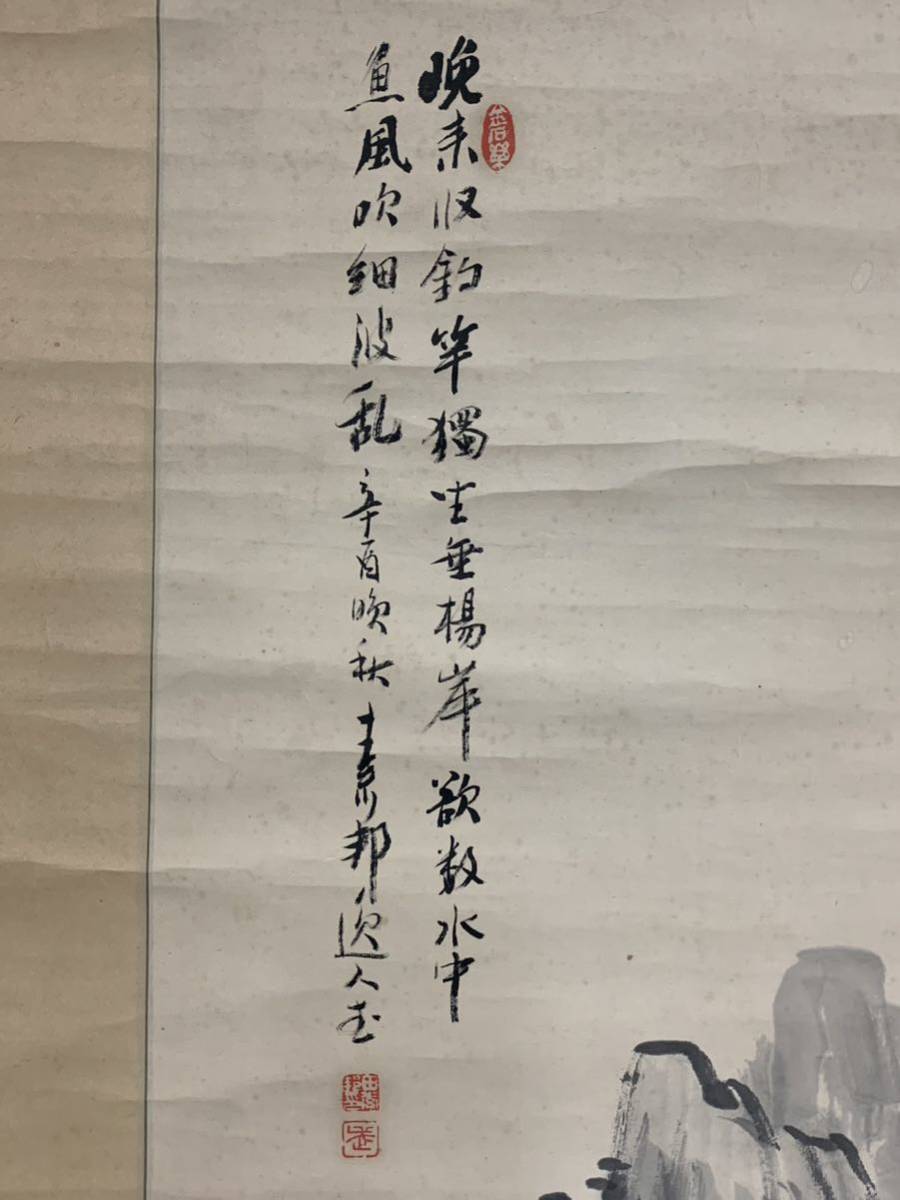 晚来収釣竿獨坐垂楊岸欲数水中
魚風吹細波乱辛酉晚秋素邦逸人